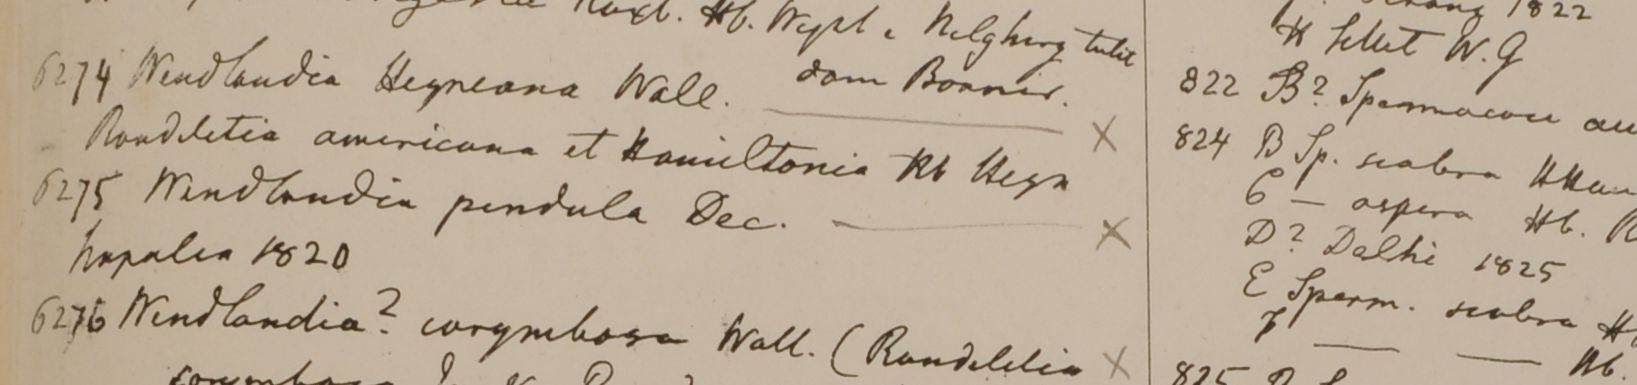 Roxb. Hb. Wight e Nilghery tulit
dom Bonnier.
6274 Wendlandia Heyneana Wall. ——— X
Rondeletia americana et Hamiltonia Hb Heyn
6275 Wendlandia pendula Dec. ——— X
Napalia 1820
6276 Wendlandia? corymbosa Wall. (Rondeletia X
corymbosa
1822
H Sillet W. G
822 B? Spermacoce
824 B Sp. scabra
C — aspera Hb.
D? Dalhi 1825
E Sperm. scabra
F —— —— Hb.
825